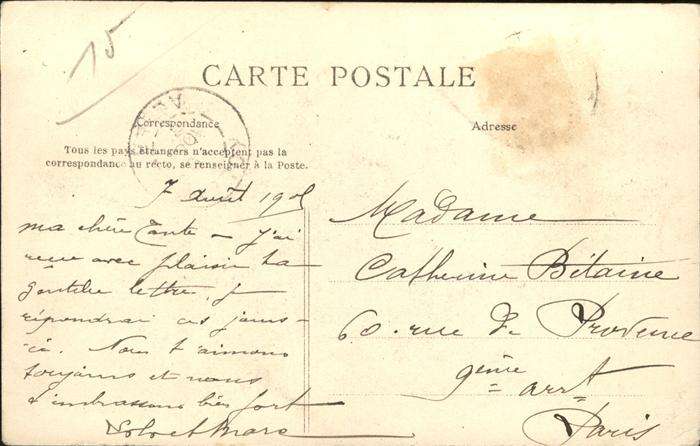 15
CARTE POSTALE
Correspondance
Adresse
Tous les pays étrangers n'acceptent pas la
correspondance au recto, se renseigner à la Poste.
7 août 190
ma chère Tante – j'ai
reçu avec plaisir ta
gentille lettre, j
répondrai ces jours-
ci. Nous t'aimons
toujours et nous
t'embrassons bien fort
et Marc
Madame
Catherine Bitaine
60. rue de Provence
9ème arrt
Paris